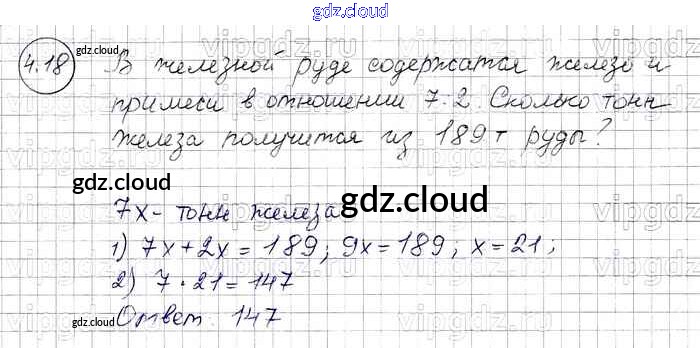 gdz.cloud
4.18 В железной руде содержатся железо и
примеси в отношении 7:2. Сколько тонн
железа получится из 189 т руды?
gdz.cloud
gdz.cloud
gdz.cloud
7х - тонн железа
1) 7х + 2х = 189; 9х = 189; х = 21;
2) 7 · 21 = 147
Ответ 147
gdz.cloud
gdz.cloud